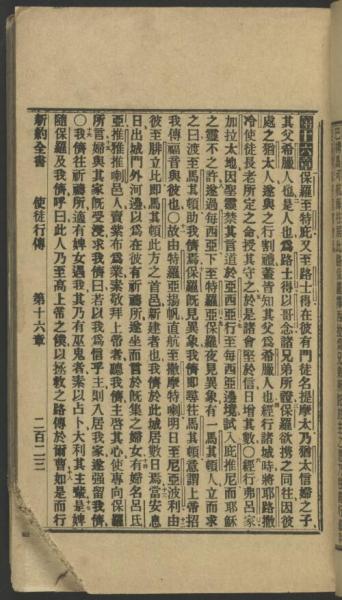 第十六章 保羅至特庇又至路士得在彼有門徒名提摩太乃猶太信婦之子
其父希臘人也是人也爲路士得以哥念諸兄弟所證保羅欲携之同往因彼
處之猶太人遂與之行割禮蓋皆知其父爲希臘人也經行諸城時將耶路撒
冷使徒長老所定之命授其守之於是諸會堅於信日增其數〇經行弗呂家
加拉太地因聖靈禁其言道於亞西亞行至每西亞邊境試入庇推尼而耶穌
之靈不之許遂過每西亞下至特羅亞保羅夜見異象有一馬其頓人立而求
之曰渡至馬其頓助我儕焉保羅旣見異象我儕卽尋往馬其頓意謂上帝招
我傳福音與彼也〇故由特羅亞揚帆直航至撒摩特喇明日至尼亞波利由
彼至腓立比卽馬其頓此方之首邑新建者也我儕於此城居數日焉當安息
日出城門外河邊以爲在彼有祈禱所遂坐而言於旣集之婦女有婦名呂氏
亞推雅推喇邑人賣紫布爲業素敬拜上帝者聽我儕主啓其心使專向保羅
所言婦與其家旣受浸求我儕曰若以我爲信乎主則入居我家遂强留我儕
〇我儕往祈禱所適有婢女遇我其乃有巫鬼者素以占卜大利其主輩是婢
隨保羅及我儕呼曰此人乃至高上帝之僕以拯救之路傳於爾曹如是而行
新約全書 使徒行傳 第十六章 二百二三